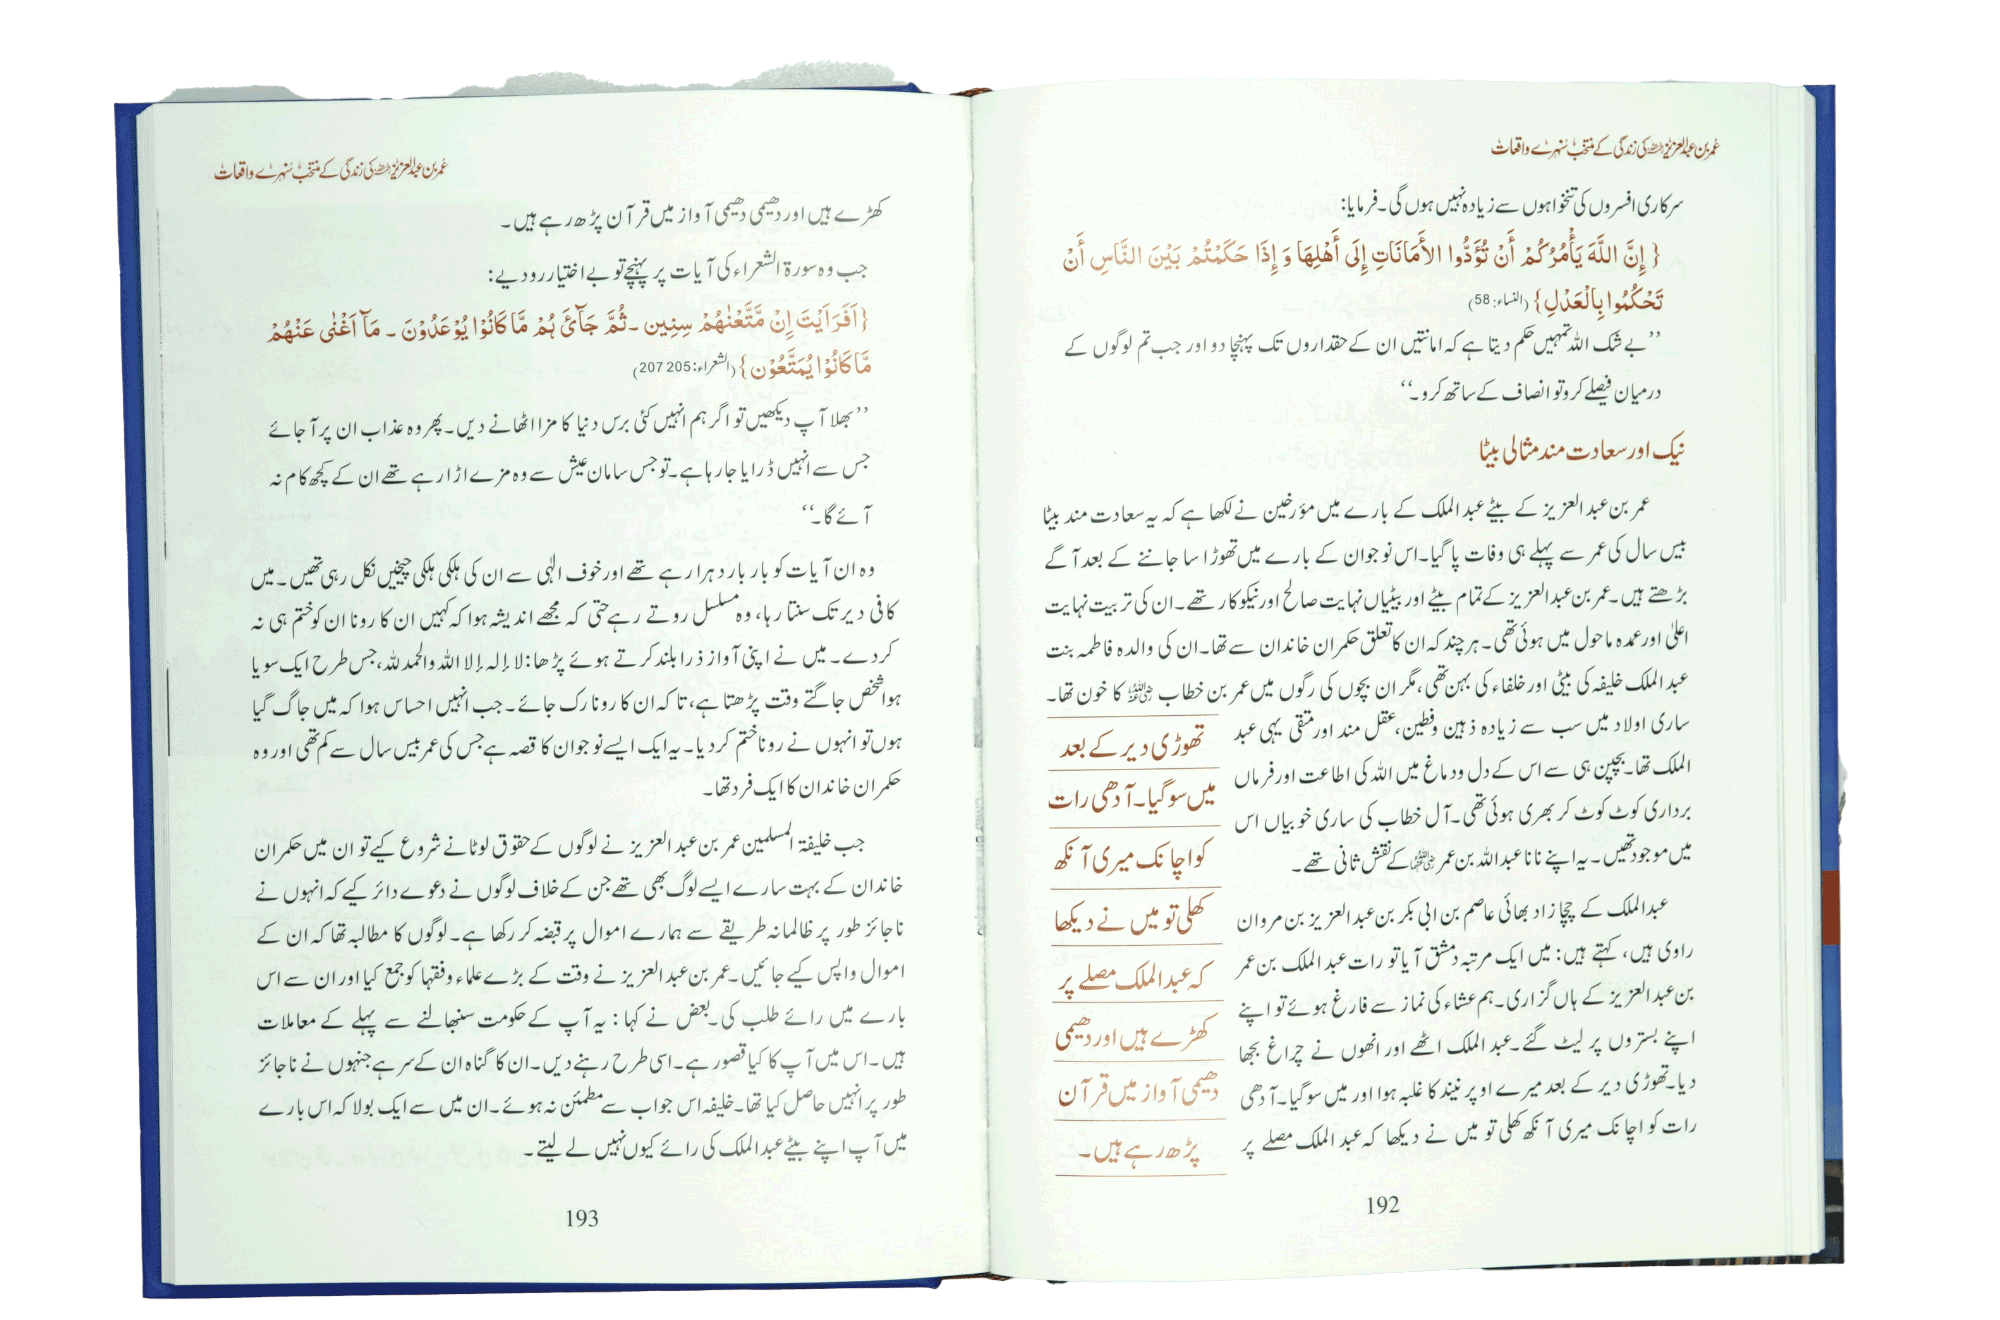 عمر بن عبدالعزیز رحمہ اللہ کی زندگی کے منتخب سنہرے واقعات
سرکاری افسروں کی تنخواہوں سے زیادہ نہیں ہوں گی۔ فرمایا:
{ إِنَّ اللَّهَ يَأْمُرُكُمْ أَنْ تُؤَدُّوا الأَمَانَاتِ إِلَى أَهْلِهَا وَ إِذَا حَكَمْتُمْ بَيْنَ النَّاسِ أَنْ
تَحْكُمُوا بِالْعَدْلِ} (النساء: 58)
’’بے شک اللہ تمہیں حکم دیتا ہے کہ امانتیں ان کے حقداروں تک پہنچا دو اور جب تم لوگوں کے
درمیان فیصلے کرو تو انصاف کے ساتھ کرو۔‘‘
نیک اور سعادت مند مثالی بیٹا
عمر بن عبد العزیز کے بیٹے عبد الملک کے بارے میں مؤرخین نے لکھا ہے کہ یہ سعادت مند بیٹا
بیس سال کی عمر سے پہلے ہی وفات پا گیا۔ اس نوجوان کے بارے میں تھوڑا سا جاننے کے بعد آگے
بڑھتے ہیں۔ عمر بن عبدالعزیز کے تمام بیٹے اور بیٹیاں نہایت صالح اور نیکوکار تھے۔ ان کی تربیت نہایت
اعلیٰ اور عمدہ ماحول میں ہوئی تھی۔ ہر چند کہ ان کا تعلق حکمران خاندان سے تھا۔ ان کی والدہ فاطمہ بنت
عبد الملک خلیفہ کی بیٹی اور خلفاء کی بہن تھی، مگر ان بچوں کی رگوں میں عمر بن خطاب رضی اللہ عنہ کا خون تھا۔
ساری اولاد میں سب سے زیادہ ذہین وفطین، عقل مند اور متقی یہی عبد
الملک تھا۔ بچپن ہی سے اس کے دل ودماغ میں اللہ کی اطاعت اور فرماں
برداری کوٹ کوٹ کر بھری ہوئی تھی۔ آل خطاب کی ساری خوبیاں اس
میں موجود تھیں۔ یہ اپنے نانا عبد اللہ بن عمر رضی اللہ عنہما کے نقش ثانی تھے۔
عبدالملک کے چچا زاد بھائی عاصم بن ابی بکر بن عبد العزیز بن مروان
راوی ہیں، کہتے ہیں: میں ایک مرتبہ دمشق آیا تو رات عبد الملک بن عمر
بن عبد العزیز کے ہاں گزاری۔ ہم عشاء کی نماز سے فارغ ہوئے تو اپنے
اپنے بستروں پر لیٹ گئے۔ عبد الملک اٹھے اور انھوں نے چراغ بجھا
دیا۔ تھوڑی دیر کے بعد میرے اوپر نیند کا غلبہ ہوا اور میں سو گیا۔ آدھی
رات کو اچانک میری آنکھ کھلی تو میں نے دیکھا کہ عبد الملک مصلے پر
تھوڑی دیر کے بعد
میں سو گیا۔ آدھی رات
کو اچانک میری آنکھ
کھلی تو میں نے دیکھا
کہ عبد الملک مصلے پر
کھڑے ہیں اور دھیمی
دھیمی آواز میں قرآن
پڑھ رہے ہیں۔
192
عمر بن عبدالعزیز رحمہ اللہ کی زندگی کے منتخب سنہرے واقعات
کھڑے ہیں اور دھیمی دھیمی آواز میں قرآن پڑھ رہے ہیں۔
جب وہ سورۃ الشعراء کی آیات پر پہنچے تو بے اختیار رو دیے:
{اَفَرَاَيْتَ اِنْ مَّتَّعْنٰهُمْ سِنِين ۔ ثُمَّ جَآئَ ہُمْ مَّا كَانُوْا يُوْعَدُوْنَ ۔ مَآ اَغْنٰى عَنْهُمْ
مَّا كَانُوْا يُمَتَّعُوْن} (الشعراء: 205 207)
’’بھلا آپ دیکھیں تو اگر ہم انہیں کئی برس دنیا کا مزا اٹھانے دیں۔ پھر وہ عذاب ان پر آ جائے
جس سے انہیں ڈرایا جا رہا ہے۔ تو جس سامان عیش سے وہ مزے اڑا رہے تھے ان کے کچھ کام نہ
آئے گا۔‘‘
وہ ان آیات کو بار بار دہرا رہے تھے اور خوف الٰہی سے ان کی ہلکی ہلکی چیخیں نکل رہی تھیں۔ میں
کافی دیر تک سنتا رہا، وہ مسلسل روتے رہے حتی کہ مجھے اندیشہ ہوا کہ کہیں ان کا رونا ان کو ختم ہی نہ
کر دے۔ میں نے اپنی آواز ذرا بلند کرتے ہوئے پڑھا: لا إلہ إلا اللہ والحمد للہ، جس طرح ایک سویا
ہوا شخص جاگتے وقت پڑھتا ہے، تا کہ ان کا رونا رک جائے۔ جب انہیں احساس ہوا کہ میں جاگ گیا
ہوں تو انہوں نے رونا ختم کر دیا۔ یہ ایک ایسے نوجوان کا قصہ ہے جس کی عمر بیس سال سے کم تھی اور وہ
حکمران خاندان کا ایک فرد تھا۔
جب خلیفۃ المسلمین عمر بن عبد العزیز نے لوگوں کے حقوق لوٹانے شروع کیے تو ان میں حکمران
خاندان کے بہت سارے ایسے لوگ بھی تھے جن کے خلاف لوگوں نے دعوے دائر کیے کہ انہوں نے
ناجائز طور پر ظالمانہ طریقے سے ہمارے اموال پر قبضہ کر رکھا ہے۔ لوگوں کا مطالبہ تھا کہ ان کے
اموال واپس کیے جائیں۔ عمر بن عبد العزیز نے وقت کے بڑے علماء وفقہا کو جمع کیا اور ان سے اس
بارے میں رائے طلب کی۔ بعض نے کہا: یہ آپ کے حکومت سنبھالنے سے پہلے کے معاملات
ہیں۔ اس میں آپ کا کیا قصور ہے۔ اسی طرح رہنے دیں۔ ان کا گناہ ان کے سر ہے جنہوں نے ناجائز
طور پر انہیں حاصل کیا تھا۔ خلیفہ اس جواب سے مطمئن نہ ہوئے۔ ان میں سے ایک بولا کہ اس بارے
میں آپ اپنے بیٹے عبد الملک کی رائے کیوں نہیں لے لیتے۔
193